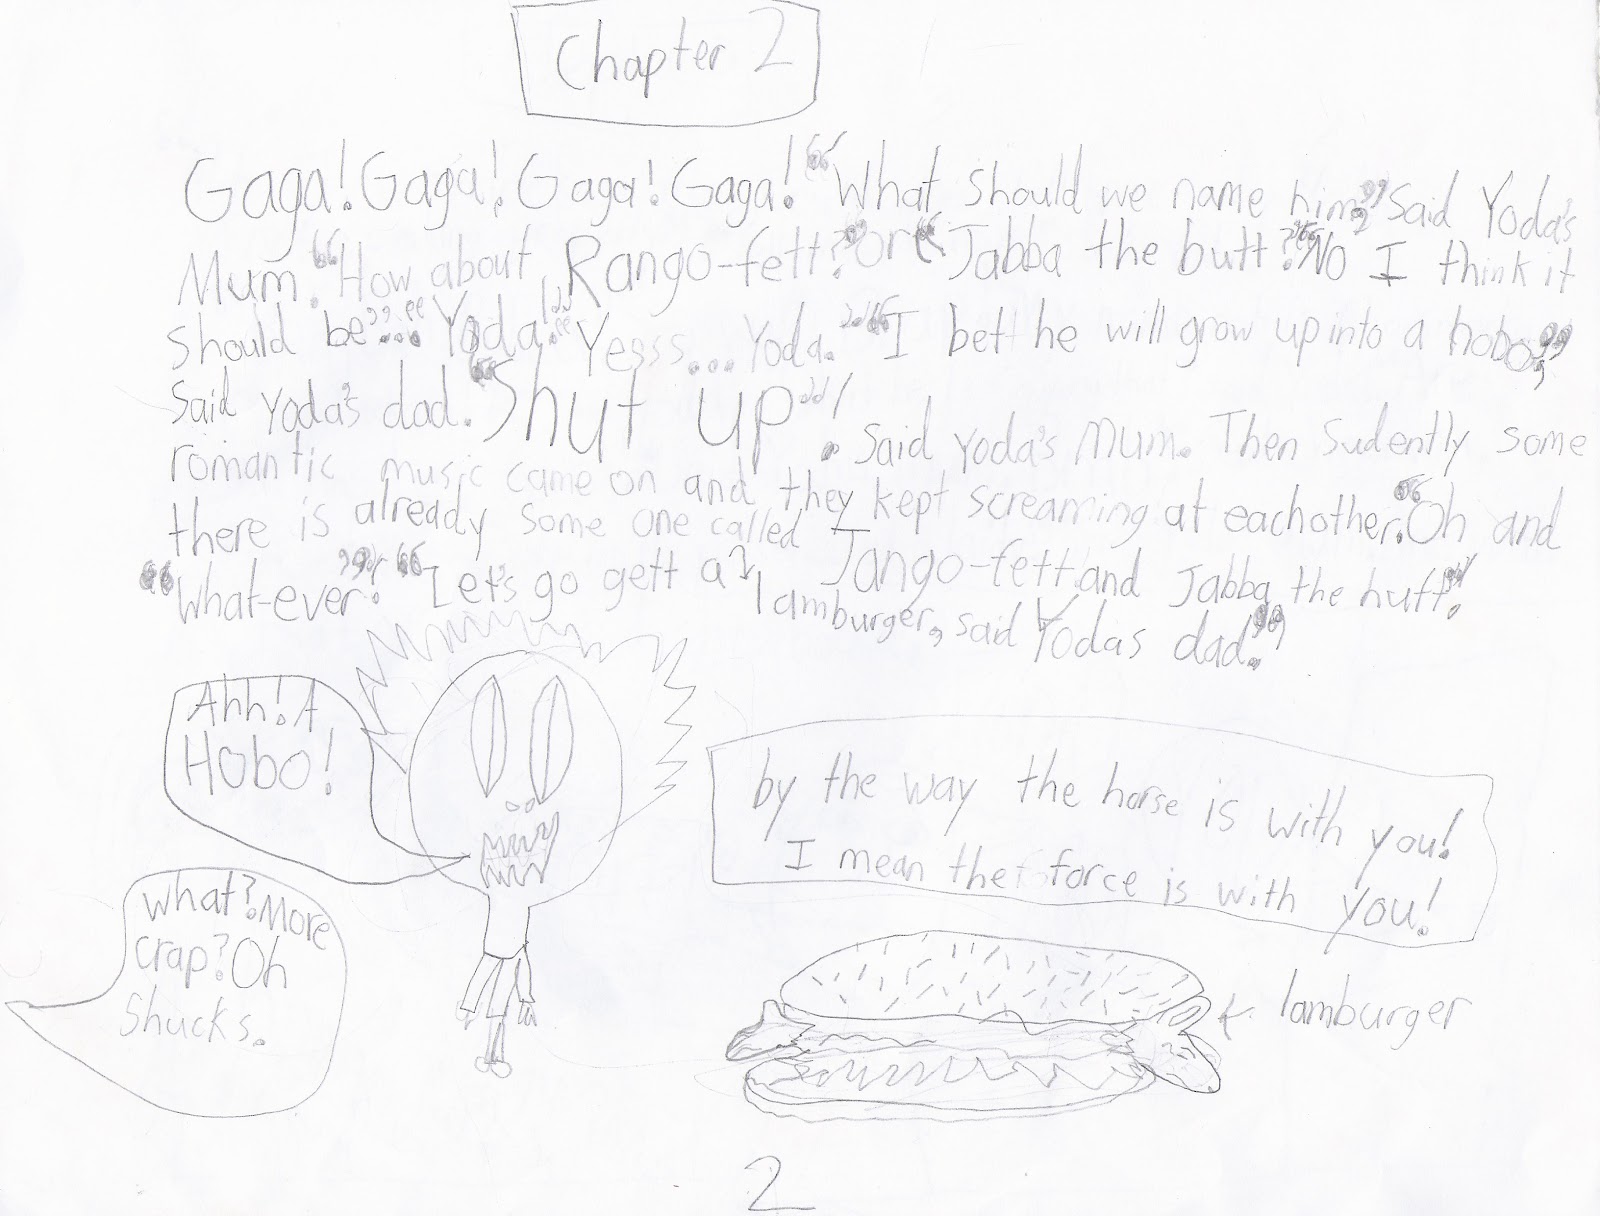 Chapter 2
Gaga! Gaga! Gaga! Gaga! "What should we name him?" Said Yoda's
Mum. "How about Rango-fett?" or "Jabba the butt?" "No I think it
should be"... "Yoda!" "Yesss... Yoda." "I bett he will grow up into a hobo,"
Said Yoda's dad. "Shut up"! Said Yoda's Mum. Then Sudently some
romantic music came on and they kept screaming at eachother. "Oh and
there is already some one called Jango-fett and Jabba the hutt".
"What-ever". "Let's go gett a lamburger, said Yodas dad."
Ahh! A
Hobo!
by the way the horse is with you!
I mean the force is with you!
What? More
crap? Oh
Shucks.
lamburger
2